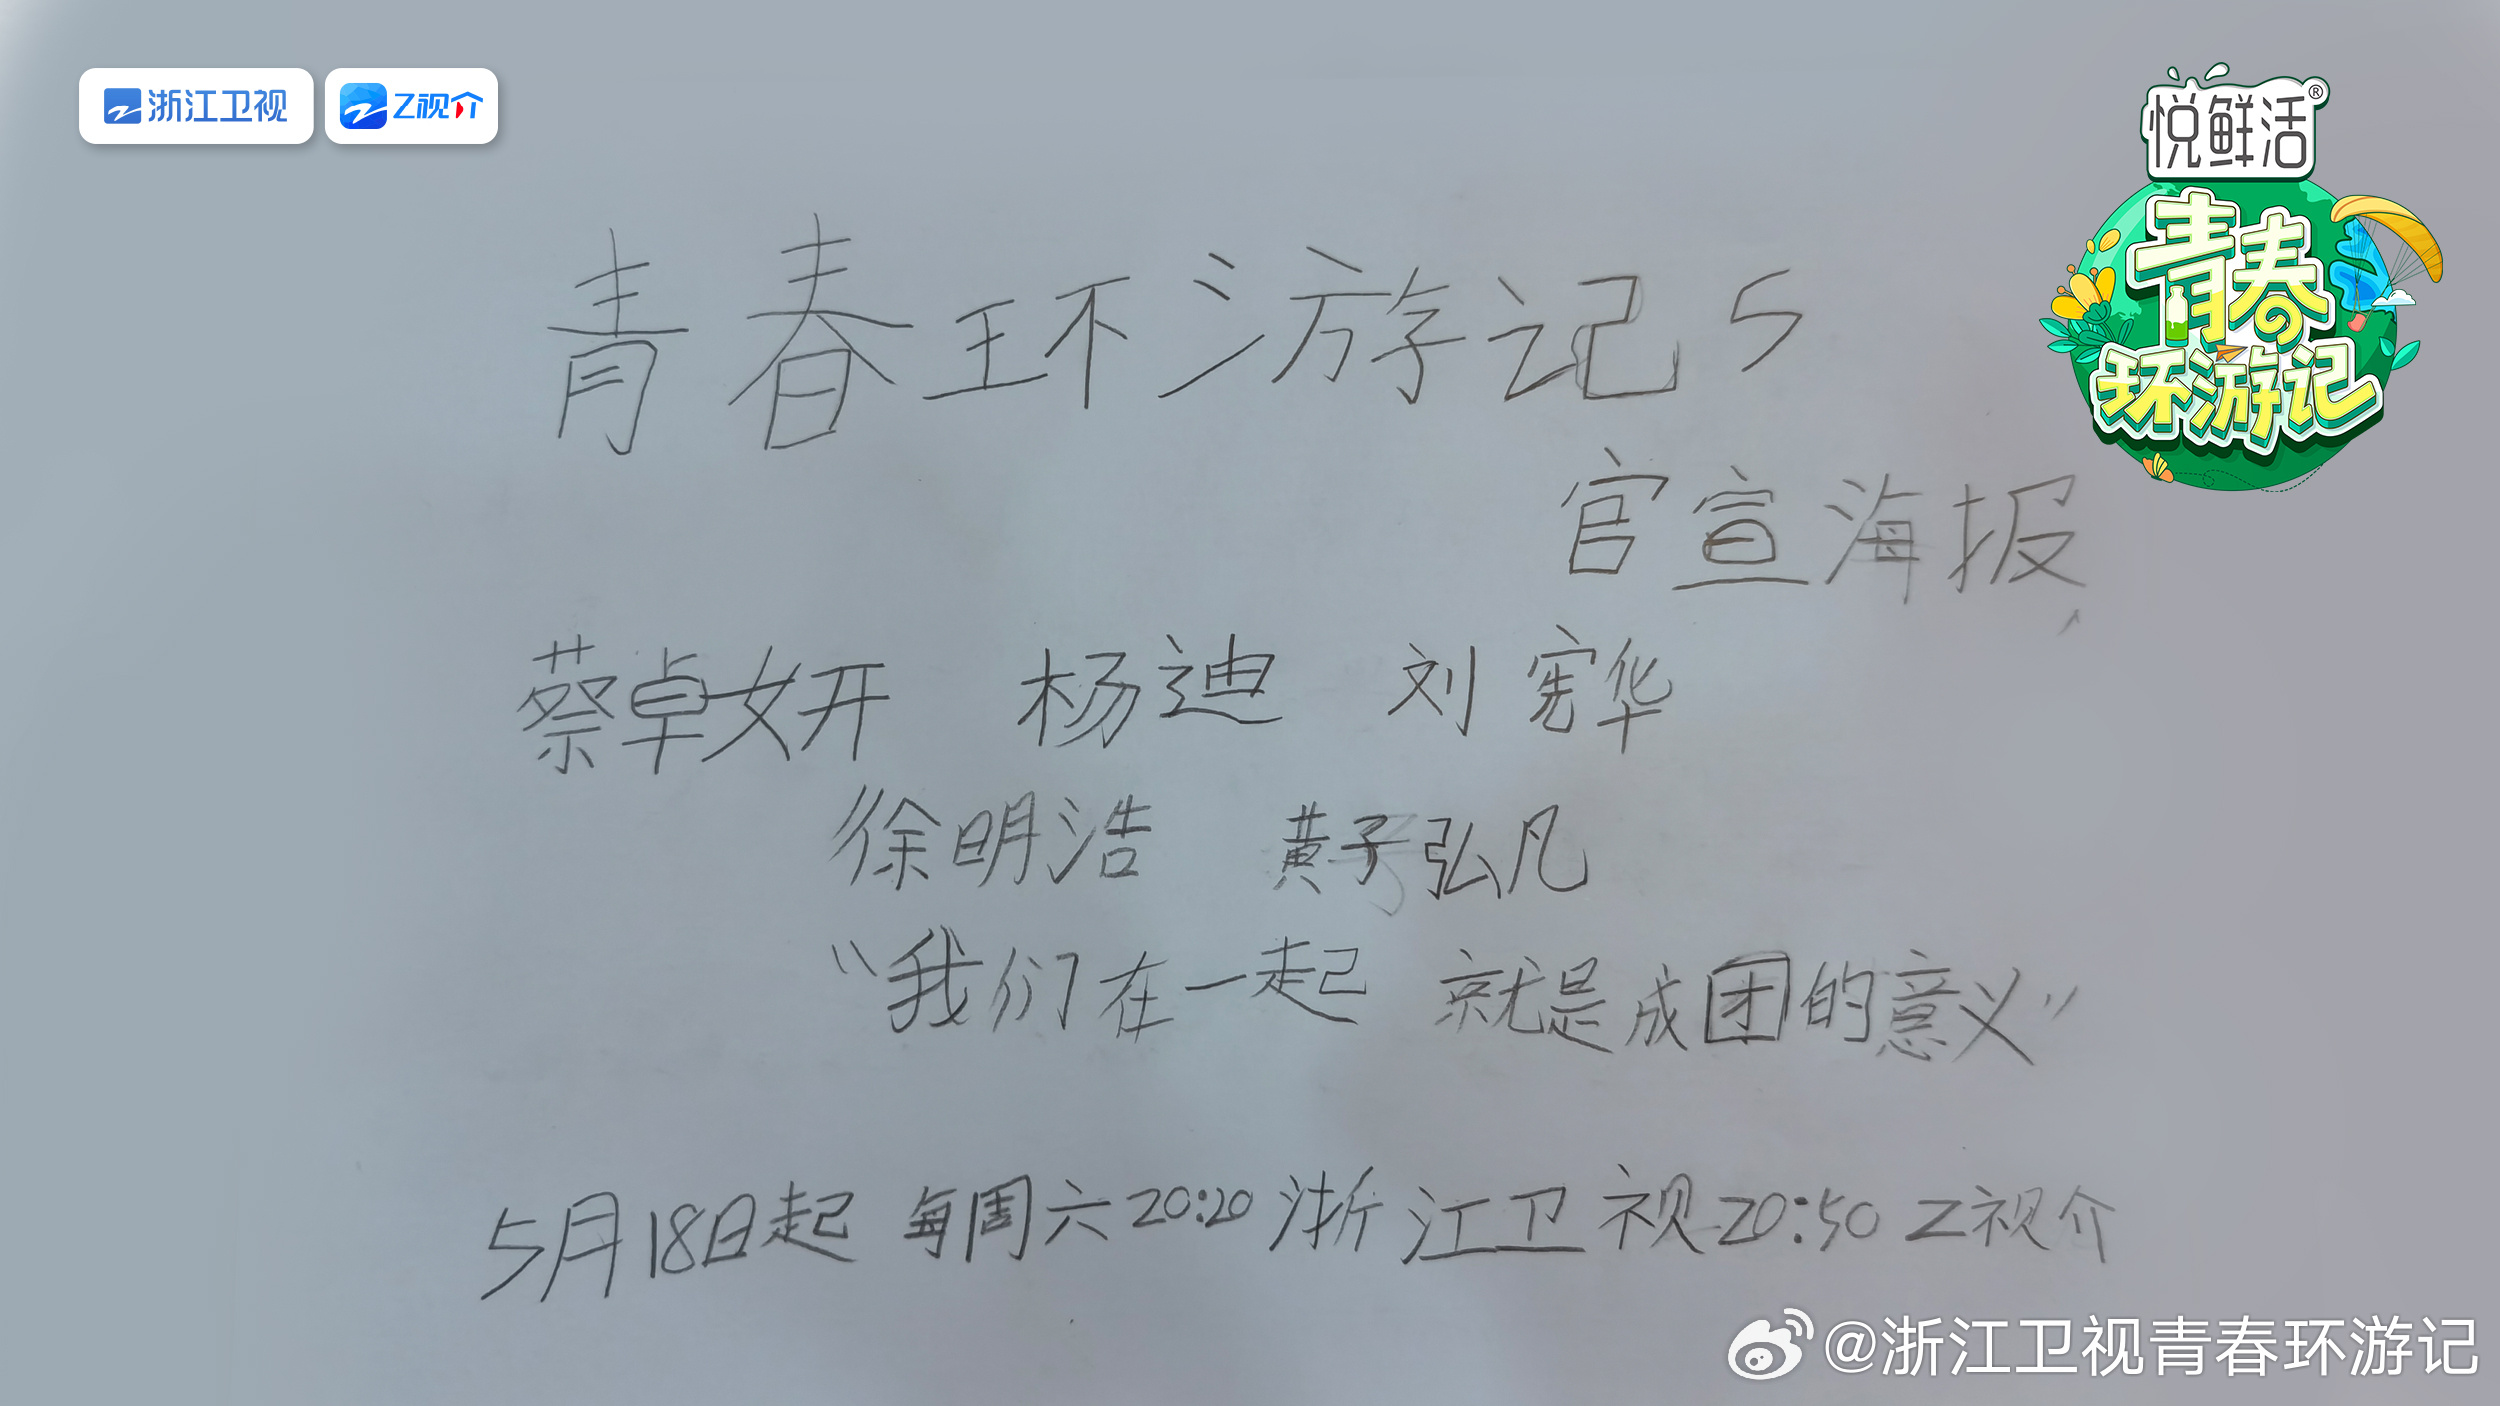 浙江卫视 Z视介
悦鲜活®
青春
环游记
青春环游记5
官宣海报
蔡卓妍 杨迪 刘宪华
徐明浩 黄子弘凡
“我们在一起 就是成团的意义”
5月18日起 每周六20:20浙江卫视20:50Z视介
@浙江卫视青春环游记